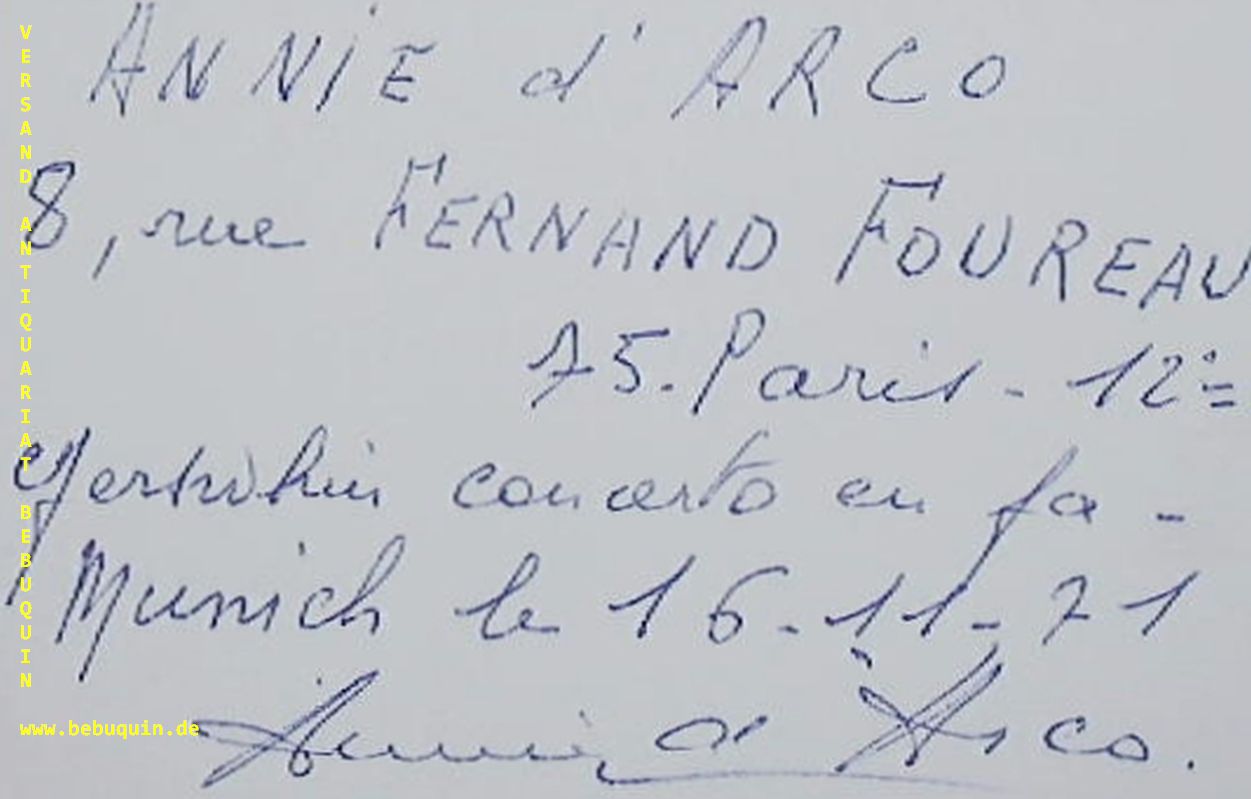 ANNIE d'ARCO
8, rue FERNAND FOUREAU
75. Paris - 12e
Gershwin concerto en fa -
Munich le 16-11-71
Annie d'Arco.
VERSAND ANTIQUARIAT BEBUQUIN
www.bebuquin.de